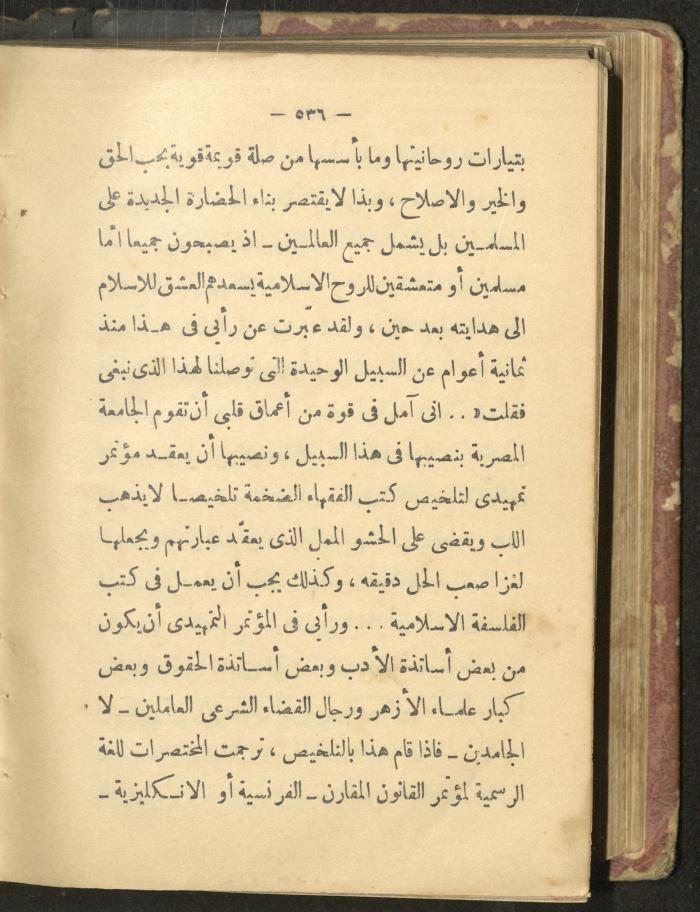 — ٥٣٦ —
بتيارات روحانيتها وما بأسسها من صلة قويمة قوية بحب الحق
والخير والاصلاح ، وبذا لا يقتصر بناء الحضارة الجديدة على
المسلمين بل يشمل جميع العالمين ـ اذ يصبحون جميعا امّا
مسلمين أو متعشقين للروح الاسلامية يسعدهم العشق للاسلام
الى هدايته بعد حين ، ولقد عبّرت عن رأبى فى هذا منذ
ثمانية أعوام عن السبيل الوحيدة التى توصلنا لهذا الذى نبغى
فقلت « . . انى آمل فى قوة من أعماق قلبى أن تقوم الجامعة
المصرية بنصيبها فى هذا السبيل ، ونصيبها أن يعقد مؤتمر
تمهيدى لتلخيص كتب الفقهاء الضخمة تلخيصا لا يذهب
اللب ويقضى على الحشو الممل الذى يعقّد عبارتهم ويجعلها
لغزا صعب الحل دقيقه ، وكذلك يجب أن يعمل فى كتب
الفلسفة الاسلامية . . . ورأبى فى المؤتمر التمهيدى أن يكون
من بعض أساتذة الأدب وبعض أساتذة الحقوق وبعض
كبار علماء الأزهر ورجال القضاء الشرعى العاملين ـ لا
الجامدين ـ فاذا قام هذا بالتلخيص ، ترجمت المختصرات للغة
الرسمية لمؤتمر القانون المقارن ـ الفرنسية أو الانكليزية ـ